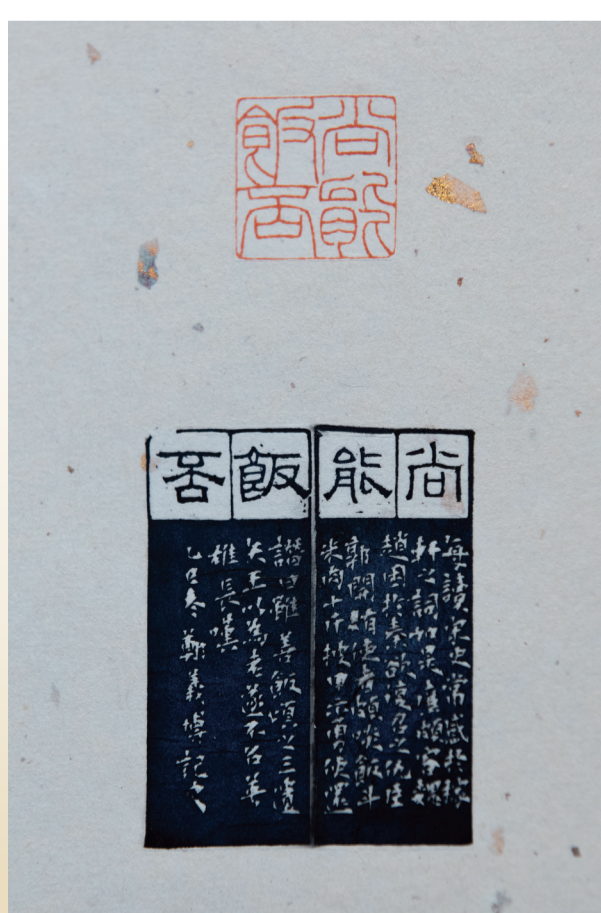 尚能
飯否
尚能飯否
每讀宋史常感於稼
軒之詞如見廉頗客魏
趙困於秦欲復召之仇臣
郭開賄使者頗啖飯斗
米肉十斤披甲示勇使還
譖曰雖善飯頃之三遺
矢王以為老遂不召英
雄長嘆
乙巳冬義博記之